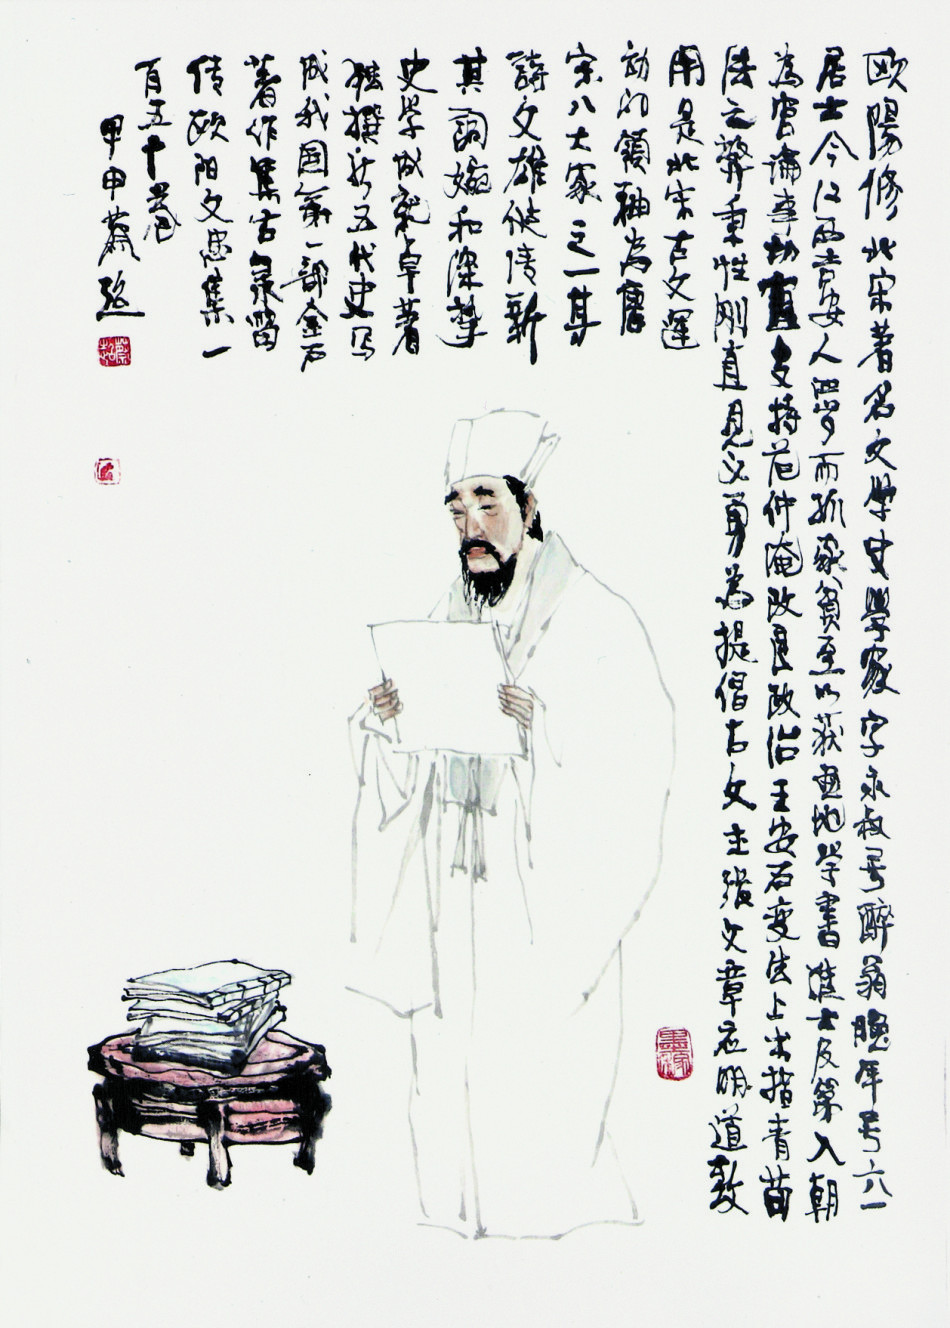 歐陽修北宋著名文學史學家字永叔号醉翁晚年号六一
居士今江西吉安人四岁而孤家貧至以荻画地学書進士及第入朝
為官論事切直支持范仲淹改良政治王安石变法上指青苗
法之弊秉性剛直見义勇為提倡古文主張文章应明道致
用是北宋古文運
动的領袖为唐
宋八大家之一其
詩文雄健清新
其詞婉和深摯
史学成就卓著
独撰新五代史写
成我国第一部金石
著作集古录留
传欧阳文忠集一
百五十卷
甲申